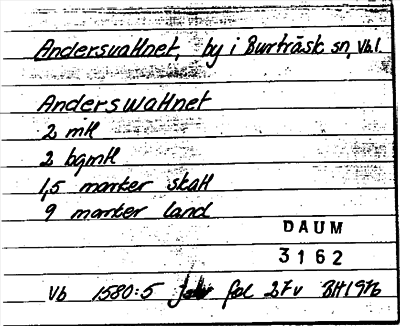 Andersvattnet, by i Burträsk sn, Vb.l.
Anderswattnet
2 mtl
2 bgmtl
1,5 marker skatt
9 marker land
DAUM
3162
Vb 1580:5 fol 27v BH1976